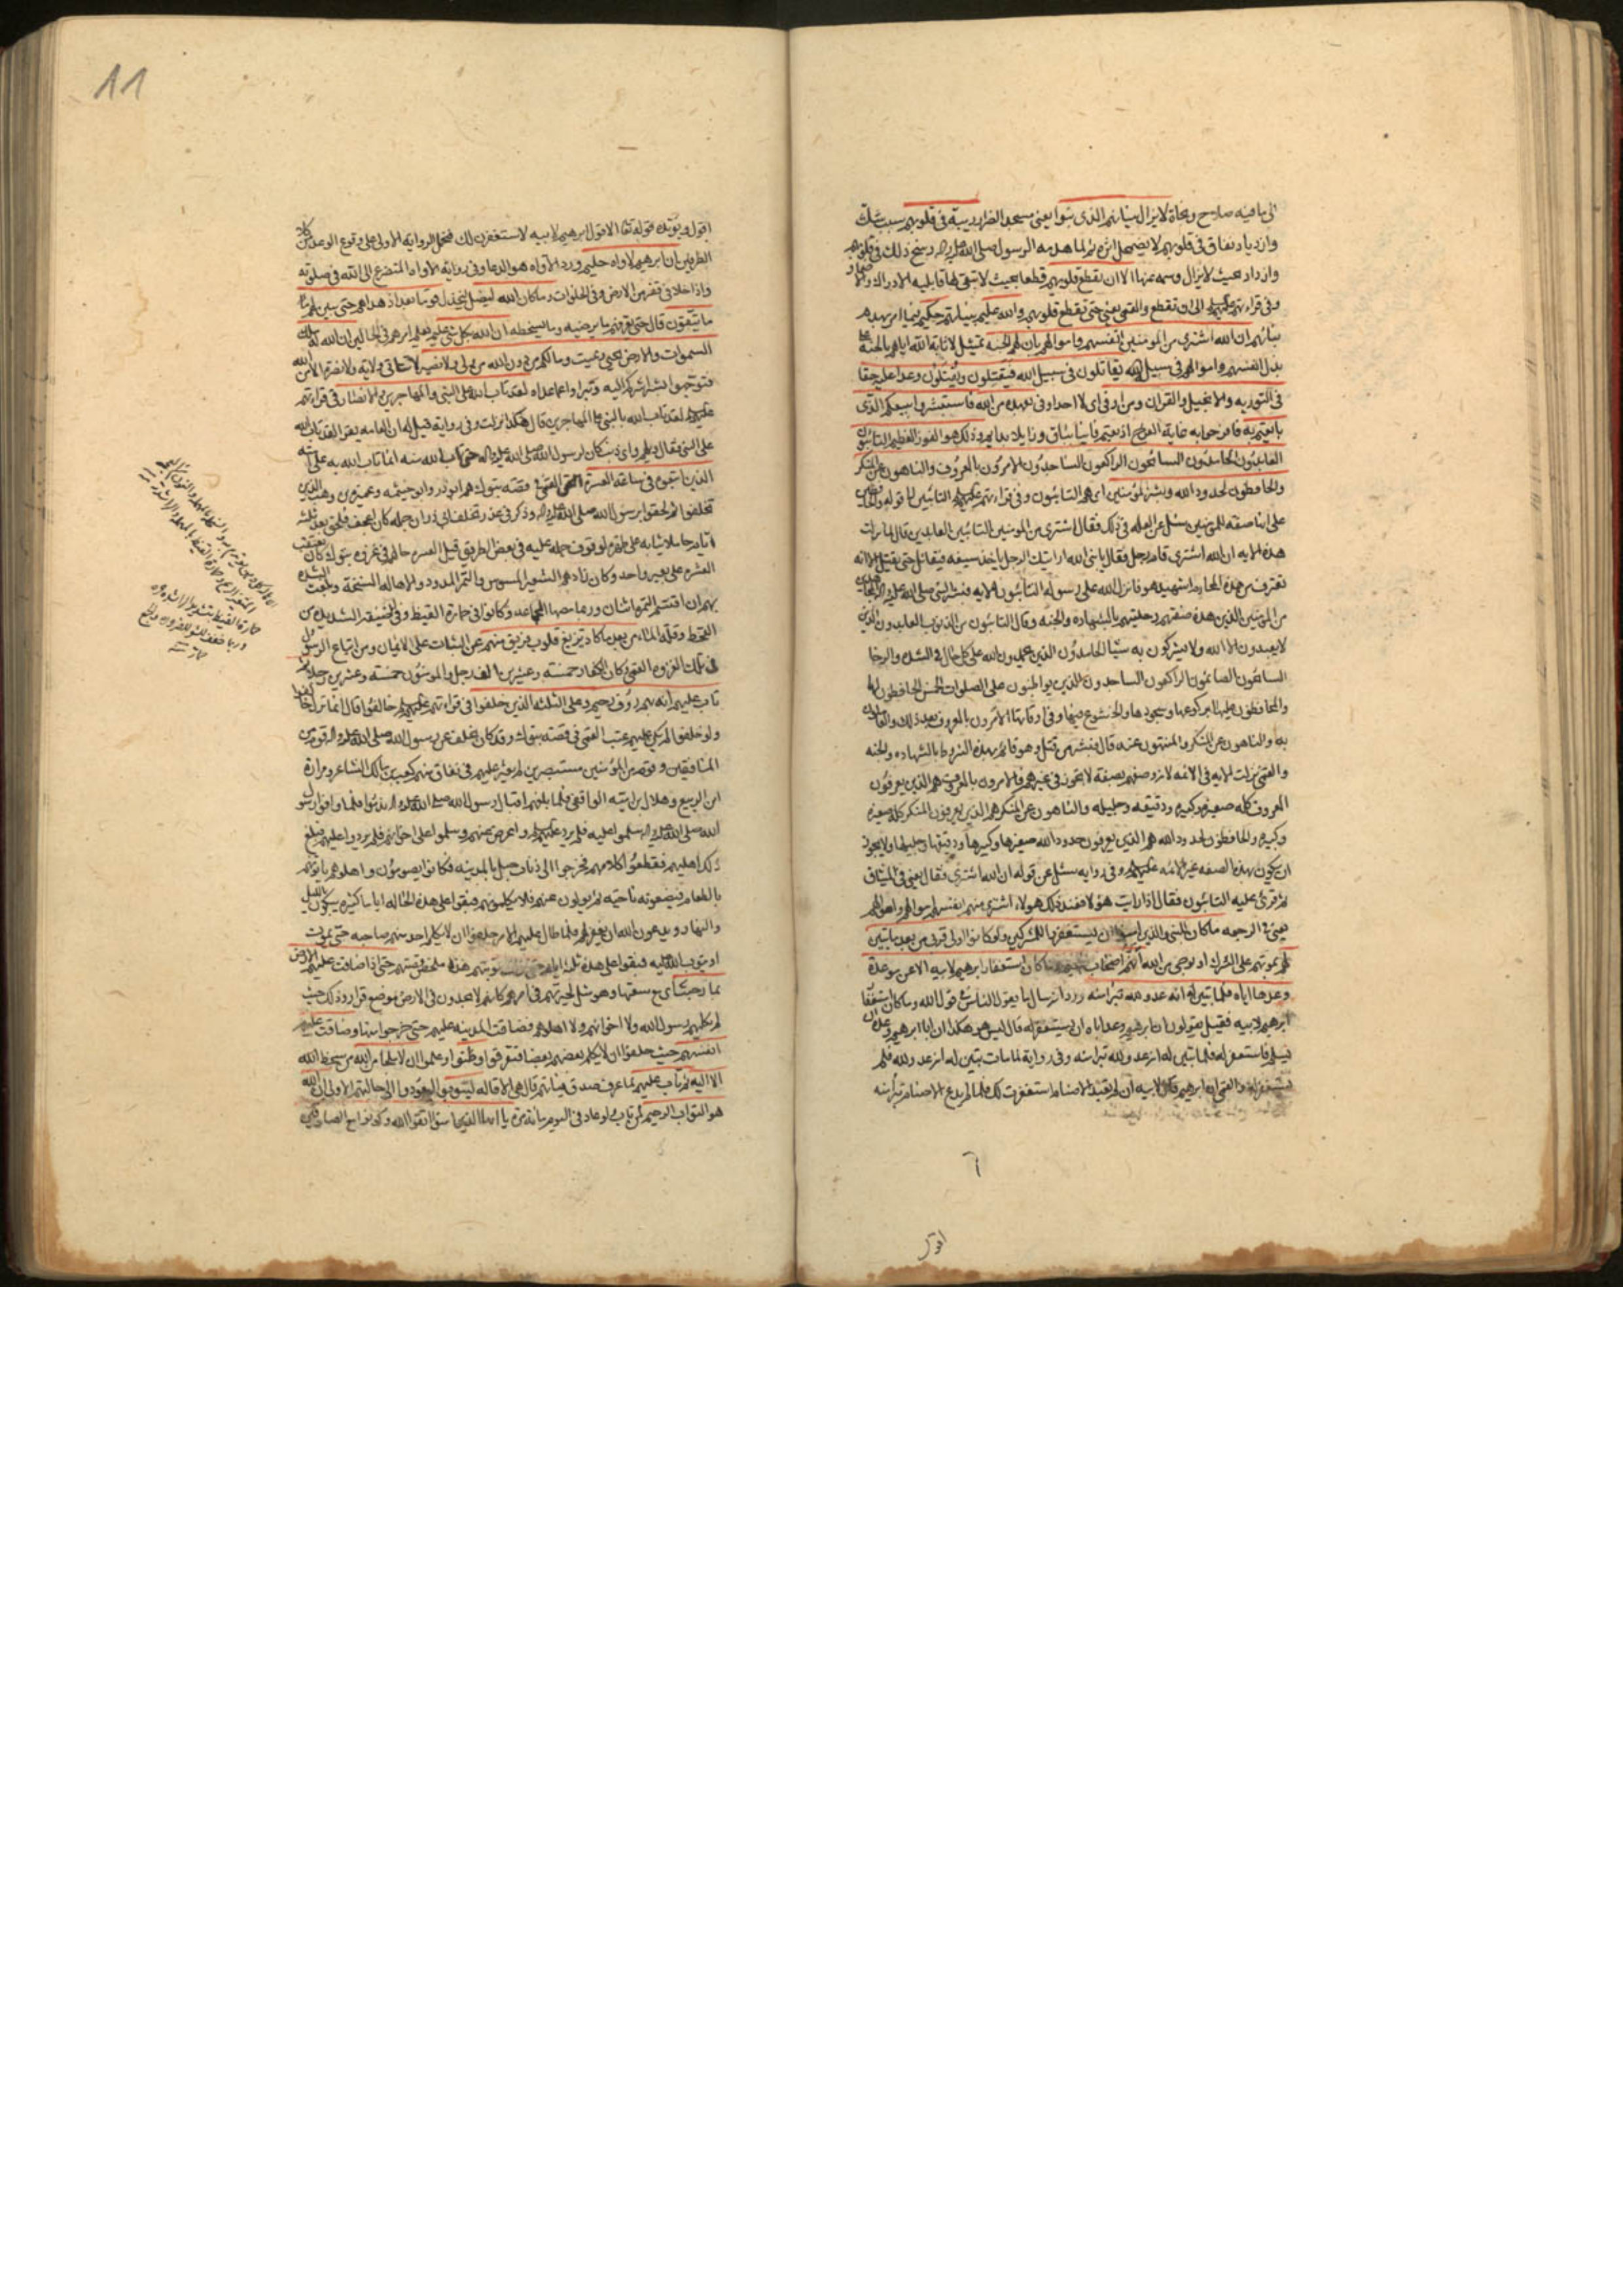 الى ما فيه صلاح ونجاة لا يزال بنيانهم الذي بنوا يعني مسجد الضرار ريبة في قلوبهم سبب شك
وازدياد نفاق في قلوبهم لا يضمحل اثره ثم لما هدمه الرسول صلى الله عليه واله رسخ ذلك في قلوبهم
وازداد بحيث لا يزال وسمه عنها الا ان تقطع قلوبهم قطعا بحيث لا تبقى لها قابلية الادراك
وفي قراءتهم عليهم السلم الى ان تقطع والقمي يعني حتى تقطع قلوبهم والله عليم بنياتهم حكيم فيما امر بهدم
بنائهم ان الله اشترى من المؤمنين انفسهم واموالهم بان لهم الجنة تمثيل لاثابة الله اياهم الجنة على
بذل انفسهم واموالهم في سبيل الله يقاتلون في سبيل الله فيقتلون ويقتلون وعدا عليه حقا
في التورية والانجيل والقران ومن اوفى اي لا احد اوفى بعهده من الله فاستبشروا ببيعكم الذي
بايعتم به فافرحوا به غاية الفرح اذ بعتم فانيا بباق وزايلا بدايم وذلك هو الفوز العظيم التائبون
العابدون الحامدون السائحون الراكعون الساجدون الامرون بالمعروف والناهون عن المنكر
والحافظون لحدود الله وبشر المؤمنين اي هم التائبون وفي قراءتهم عليهم السلم التائبين الى قوله والحافظين
على انها صفة المؤمنين سئل عن العلة في ذلك فقال اشترى من المومنين التائبين العابدين قال لما نزلت
هذه الاية ان الله اشترى قام رجل فقال يا نبي الله ارايتك الرجل ياخذ سيفه فيقاتل حتى يقتل الا انه
يقترف من هذه المحارم اشهيد هو فانزل الله على رسوله التائبون الاية فبشر النبي صلى الله عليه واله المجاهدين
من المؤمنين الذين هذه صفتهم وحليتهم بالشهادة والجنة وقال التائبون من الذنوب العابدون الذين
لا يعبدون الا الله ولا يشركون به شيئا الحامدون الذين يحمدون الله على كل حال في الشدة والرخا
السائحون الصائمون الراكعون الساجدون الذين يواظبون على الصلوات الخمس الحافظون لها
والمحافظون عليها بركوعها وسجودها والخشوع فيها وفي اوقاتها الامرون بالمعروف بعد ذلك والعاملون
به والناهون عن المنكر والمنتهون عنه قال فبشر من قتل وهو قائم بهذه الشروط بالشهادة والجنة
والقمي نزلت الاية في الائمة لانه وصفهم بصفة لا تجوز في غيرهم فالامرون بالمعروف هم الذين يعرفون
المعروف كله صغيره وكبيره ودقيقه وجليله والناهون عن المنكر هم الذين يعرفون المنكر كله صغيره
وكبيره والحافظون لحدود الله هم الذين يعرفون حدود الله صغيرها وكبيرها ودقيقها وجليلها ولا يجوز
ان يكون بهذه الصفة غير الائمة عليهم السلم وفي رواية سئل عن قوله ان الله اشترى فقال يعني في الميثاق
ثم قرئ عليه التائبون فقال اذا رايت هؤلاء فعند ذلك هولاء اشترى منهم انفسهم واموالهم
يعني في الرجعة ما كان للنبي والذين امنوا ان يستغفروا للمشركين ولو كانوا اولي قربى من بعد ما تبين
لهم بموتهم على الشرك او بوحي من الله انهم اصحاب الجحيم وما كان استغفار ابرهيم لابيه الا عن موعدة
وعدها اياه فلما تبين له انه عدو لله تبرا منه ورد انه سال ما يقول الناس في قول الله وما كان استغفار
ابرهيم لابيه فقيل يقولون ان ابرهيم وعد اباه ان يستغفر له قال ليس هو هكذا ان ابا ابرهيم وعده ان
يسلم فاستغفر له فلما تبين له انه عدو لله تبرا منه وفي رواية لما مات تبين له انه عدو لله فلم
يستغفر له والقمي ان ابرهيم قال لابيه ان لم تعبد الاصنام استغفرت لك فلما لم يدع الاصنام تبرا منه
اقول
11
اقول ويؤيده قوله تعا الا قول ابرهيم لابيه لاستغفرن لك فتحمل الرواية الاولى على وقوع الوعد من كلا
الطرفين ان ابرهيم لاواه حليم ورد الاواه هو الدعا وفي رواية الاواه المتضرع الى الله في صلوته
واذا خلا في قفر من الارض وفي الخلوات وما كان الله ليضل ليخذل قوما بعد اذ هداهم حتى يبين لهم
ما يتقون قال حتى يعرفهم ما يرضيه وما يسخطه ان الله بكل شئ عليم يعلم امرهم في الحالين ان الله له ملك
السموات والارض يحيي ويميت وما لكم من دون الله من ولي ولا نصير لا تتاتى ولاية ولا نصرة الا من الله
فتوجهوا بشراشركم اليه وتبراوا عما عداه لقد تاب الله على النبي والمهاجرين والانصار في قراءتهم
عليهم السلم لقد تاب الله بالنبي على المهاجرين قال هكذا نزلت وفي رواية قيل له ان العامة تقرا لقد تاب الله
على النبي فقال ويلهم واي ذنب كان لرسول الله صلى الله عليه واله حتى تاب الله منه انما تاب الله به على امته
الذين اتبعوه في ساعة العسرة القمي في قصة تبوك هم ابو ذر وابو خيثمة وعميرة بن وهب الذين
تخلفوا ثم لحقوا برسول الله صلى الله عليه واله وذكر في عذر تخلف ابي ذر ان جمله كان اعجف فلحق بعد ثلثة
ايام حاملا ثيابه على ظهره لوقوف جمله عليه في بعض الطريق قيل العسرة حالهم في غزوة تبوك كان يعتقب
العشرة على بعير واحد وكان زادهم الشعير المسوس والتمر المدود والاهالة السنخة وبلغت الشدة
بهم ان اقتسم التمرة اثنان وربما مصها الجماعة وكانوا في حمارة القيظ وفي الضيقة الشديدة من
القحط وقلة الماء من بعد ما كاد تزيغ قلوب فريق منهم عن الثبات على الايمان ومن اتباع الرسول
في تلك الغزوة القمي وكان الكفار خمسة وعشرين الف رجل والمومنون خمسة وعشرين رجلا ثم
تاب عليهم انه بهم رؤف رحيم وعلى الثلثة الذين خلفوا في قراءتهم عليهم السلم خالفوا قال انما نزل خالفوا
ولو خلفوا لم يكن عليهم عتب القمي في قصة تبوك وقد كان تخلف عن رسول الله صلى الله عليه واله قوم من
المنافقين وقوم من المؤمنين مستبصرين لم يعثر عليهم في نفاق منهم كعب بن مالك الشاعر ومرارة
ابن الربيع وهلال بن امية الواقفي فلما بلغهم اقبال رسول الله صلى الله عليه واله ندموا فلما وافوا رسول
الله صلى الله عليه واله سلموا عليه فلم يرد عليهم السلم واعرض عنهم وسلموا على اخوانهم فلم يردوا عليهم فبلغ
ذلك اهليهم فقطعوا كلامهم فخرجوا الى ذناب جبل بالمدينة فكانوا يصومون واهلوهم ياتونهم
بالطعام فيضعونه ناحية ثم يولون عنهم فلا يكلمونهم فبقوا على هذه الحالة اياما كثيرة يبكون بالليل
والنهار ويدعون الله ان يغفر لهم فلما طال عليهم الامر حلفوا ان لا يكلم احد منهم صاحبه حتى يموت
او يتوب الله عليه فبقوا على هذه ثلثة ايام حتى نزلت توبتهم هذه ملخص قصتهم حتى اذا ضاقت عليهم الارض
بما رحبت اي مع سعتها وهو مثل لحيرتهم في امرهم كانهم لا يجدون في الارض موضع قرار وذلك حيث
لم يكلمهم رسول الله ولا اخوانهم ولا اهلوهم فضاقت المدينة عليهم حتى خرجوا منها وضاقت عليهم
انفسهم حيث حلفوا ان لا يكلم بعضهم بعضا فتفرقوا وظنوا وعلموا ان لا ملجا من الله من سخط الله
الا اليه ثم تاب عليهم لما عرف صدق نياتهم قال هي الاقالة ليتوبوا ليعودوا الى حالتهم الاولى ان الله
هو التواب الرحيم لمن تاب ولو عاد في اليوم مائة مرة يا ايها الذين امنوا اتقوا الله وكونوا مع الصادقين